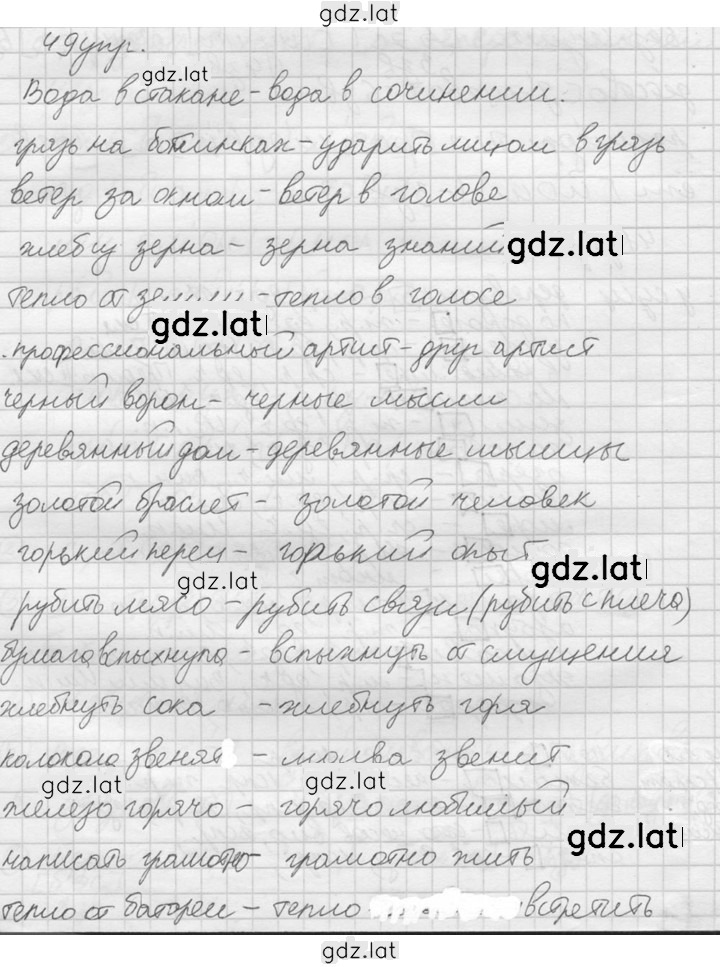 gdz.lat
49упр.
gdz.lat
Вода в стакане - вода в сочинении.
грязь на ботинках - ударить лицом в грязь
ветер за окном - ветер в голове
хлебу зерна - зерна знаний gdz.lat
тепло от - тепло в голосе
gdz.lat
профессиональный артист - друг артист
черный ворон - черные мысли
деревянный дом - деревянные мышцы
золотой браслет - золотой человек
горький перец - горький опыт
gdz.lat gdz.lat
рубить мясо - рубить связи (рубить с плеча)
бумага вспыхнула - вспыхнуть от смущения
хлебнуть сока - хлебнуть горя
колокола звенят - молва звенит
gdz.lat gdz.lat
железо горячо - горячо любимый
gdz.lat
написать грамотно - грамотно жить
тепло от батареи - тепло встретить
gdz.lat